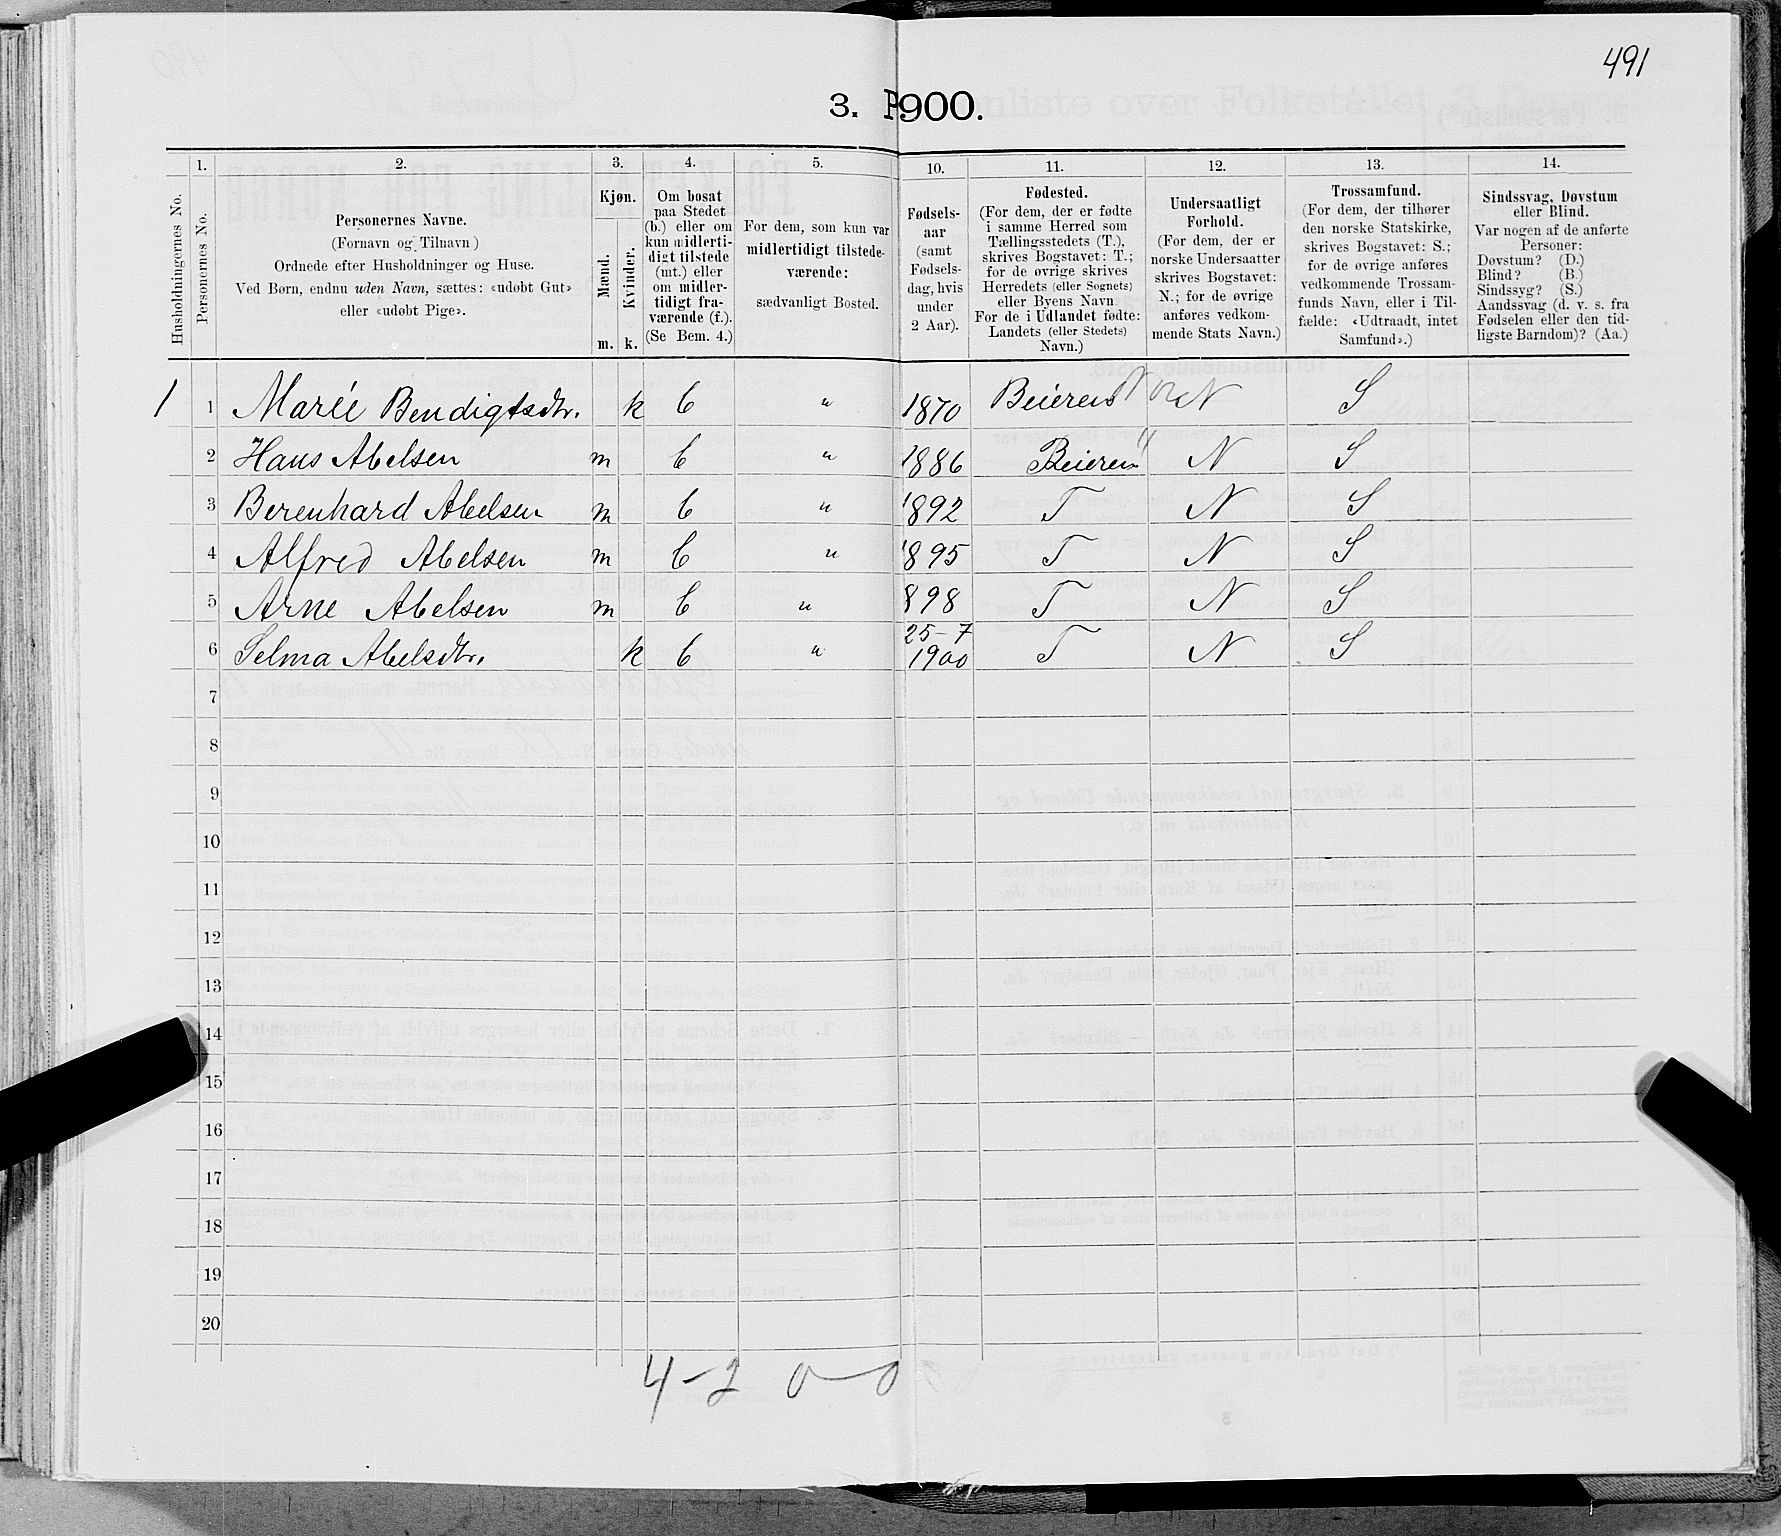 491
3. P900.
Husholdningernes No.
1.
Personernes No.
2.
Personernes Navne.
(Fornavn og Tilnavn)
Ordnede efter Husholdninger og Huse.
Ved Børn, endnu uden Navn, sættes: «udøbt Gut»
eller «udøbt Pige».
3.
Kjøn.
Mænd.
Kvinder.
m. k.
4.
Om bosat
paa Stedet
(b.) eller om
kun midlerti-
digt tilstede
(mt.) eller
om midler-
tidigt fra-
værende (f.).
(Se Bem. 4.)
5.
For dem, som kun var
midlertidigt tilstede-
værende:
sædvanligt Bosted.
10.
Fødsels-
aar
(samt
Fødsels-
dag, hvis
under
2 Aar).
11.
Fødested.
(For dem, der er fødte
i samme Herred som
Tællingsstedets (T.),
skrives Bogstavet: T.;
for de øvrige skrives
Herredets (eller Sognets)
eller Byens Navn.
For de i Udlandet fødte:
Landets (eller Stedets)
Navn.)
12.
Undersaatligt
Forhold.
(For dem, der er
norske Undersaatter
skrives Bogstavet:
N.; for de øvrige
anføres vedkom-
mende Stats Navn.)
13.
Trossamfund.
(For dem, der tilhører
den norske Statskirke,
skrives Bogstavet: S.;
for de øvrige anføres
vedkommende Trossam-
funds Navn, eller i Til-
fælde: «Udtraadt, intet
Samfund».)
14.
Sindssvag, Døvstum
eller Blind.
Var nogen af de anførte
Personer:
Døvstum? (D.)
Blind? (B.)
Sindssyg? (S.)
Aandssvag (d. v. s. fra
Fødselen eller den tid-
ligste Barndom)? (Aa.)
1 1 Marie Bendigtsdtr. k b " 1870 Beieren N S
2 Hans Abelsen m b " 1886 Beieren " N S
3 Berenhard Abelsen m b " 1892 T N S
4 Alfred Abelsen m b " 1895 T N S
5 Arne Abelsen m b " 898 T N S
6 Selma Abelsdtr. k b " 25-7 1900 T N S
7
8
9
10
11
12
13
14
15
16
17
18
19
20
4-2 0-0